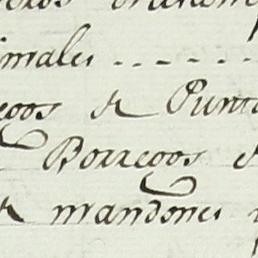 imales
egos de Punta
Borregos d
de mandones